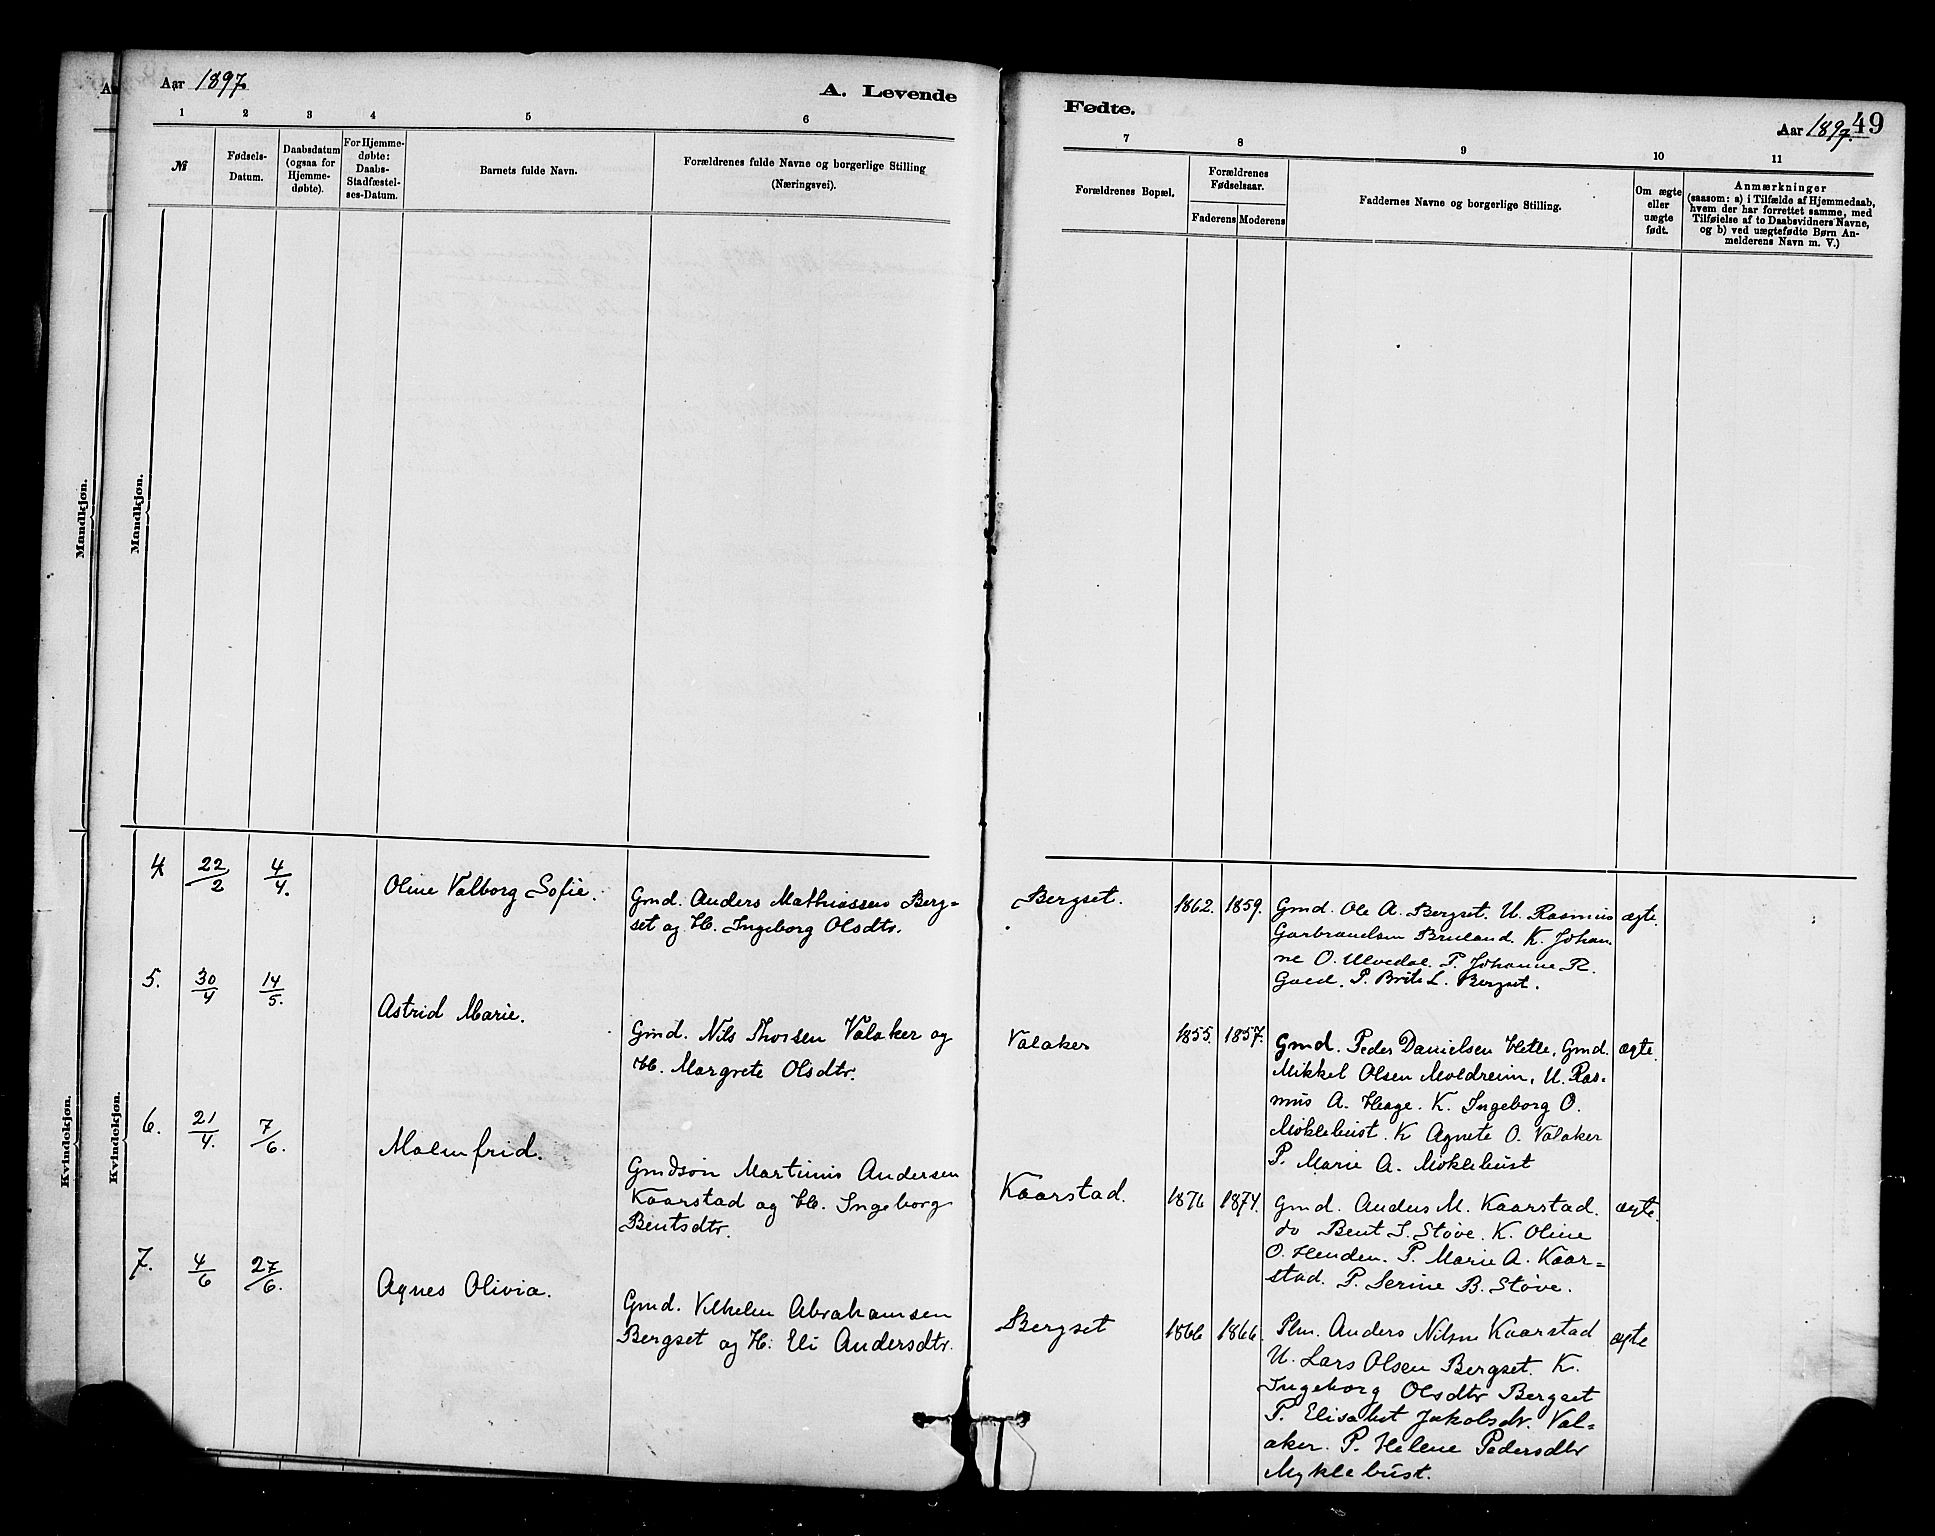 Aar 1897.
A. Levende
Fødte.
Aar 1897.
49
1 2 3 4 5 6
7 8 9 10 11
№
Fødsels-
Datum.
Daabsdatum
(ogsaa for
Hjemme-
døbte).
For Hjemme-
døbte:
Daabs-
Stadfæstel-
ses-Datum.
Barnets fulde Navn.
Forældrenes fulde Navne og borgerlige Stilling
(Næringsvei).
Forældrenes Bopæl.
Forældrenes
Fødselsaar.
Faderens Moderens
Faddernes Navne og borgerlige Stilling.
Om ægte
eller
uægte
født.
Anmærkninger
(saasom: a) i Tilfælde af Hjemmedaab,
hvem der har forrettet samme, med
Tilføielse af to Daabsvidners Navne,
og b) ved uægtefødte Børn An-
melderens Navn m. V.)
Mandkjøn.
Mandkjøn.
Kvindekjøn.
Kvindekjøn.
4 22/2 4/4.
Oline Valborg Sofie.
Gmd. Anders Mathiassen Berg=
set og H. Ingeborg Olsdtr.
Bergset.
1862. 1859.
Gmd. Ole A. Bergset. U. Rasmus
Garbrandsen Bruland. K. Johan
ne O. Ulvedal. P. Johanne R.
P. Brite L. Bergset.
ægte.
5. 30/4 14/5.
Astrid Marie.
Gmd. Nils Thorsen Valaker og
H. Margrete Olsdtr.
Valaker
1855. 1857.
Gmd. Peder Danielsen Hetle, Gmd.
Mikkel Olsen Moldreim, U. Ras=
mus A. Hage. K. Ingeborg O.
Møklebust. K Agnete O. Valaker
P. Marie A. Møklebust
ægte.
6. 21/4. 7/6.
Malmfrid.
Gmdsøn Martinus Andersen
Kaarstad og H. Ingeborg
Bentsdtr.
Kaarstad.
1876 1874.
Gmd. Anders M. Kaarstad.
do Bent S. Støve. K. Oline
O. Henden. P. Marie A. Kaar=
stad. P. Serine B. Støve.
ægte.
7. 4/6 27/6.
Agnes Olivia.
Gmd. Vilhelm Abrahamsen
Bergset og H. Eli Andersdtr.
Bergset
1866 1866.
Plm. Anders Nilsen Kaarstad
U. Lars Olsen Bergset. K.
Ingeborg Olsdtr Bergset
P. Elisabet Jakobsdr. Val=
aker. P. Helene Pedersdtr
Myklebust.
ægte